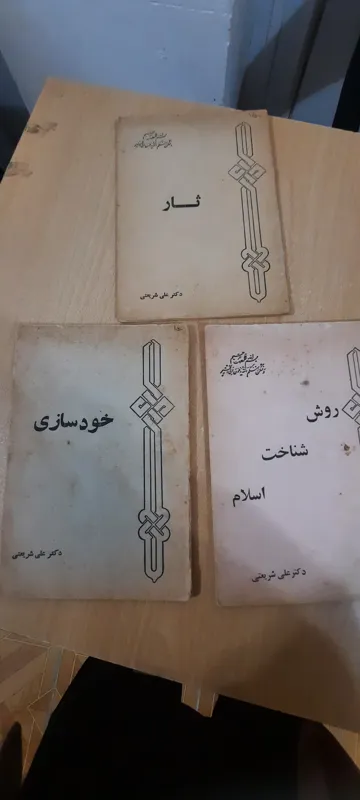 ثــار
دکتر علی شریعتی
خودسازی
دکتر علی شریعتی
روش
شناخت
اسلام
دکتر علی شریعتی